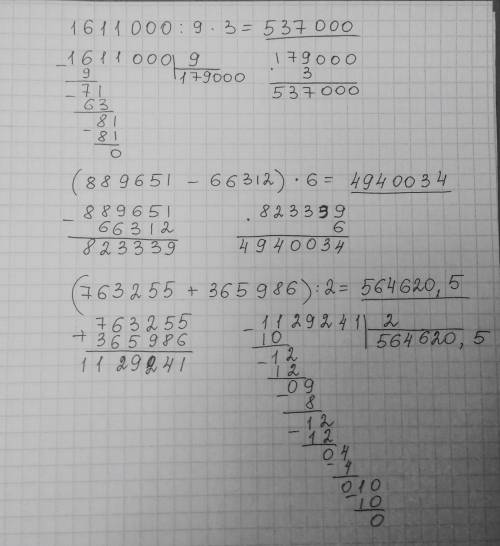 1611000 : 9 · 3 = 537000
- 1611000 | 9
9 179000
- 71
63
- 81
81
0
179000
· 3
537000
(889651 - 66312) · 6 = 4940034
- 889651
66312
823339
· 823339
6
4940034
(763255 + 365986) : 2 = 564620,5
+ 763255
365986
1129241
- 1129241 | 2
10 564620,5
- 12
12
- 09
8
- 12
12
04
- 4
010
- 10
0